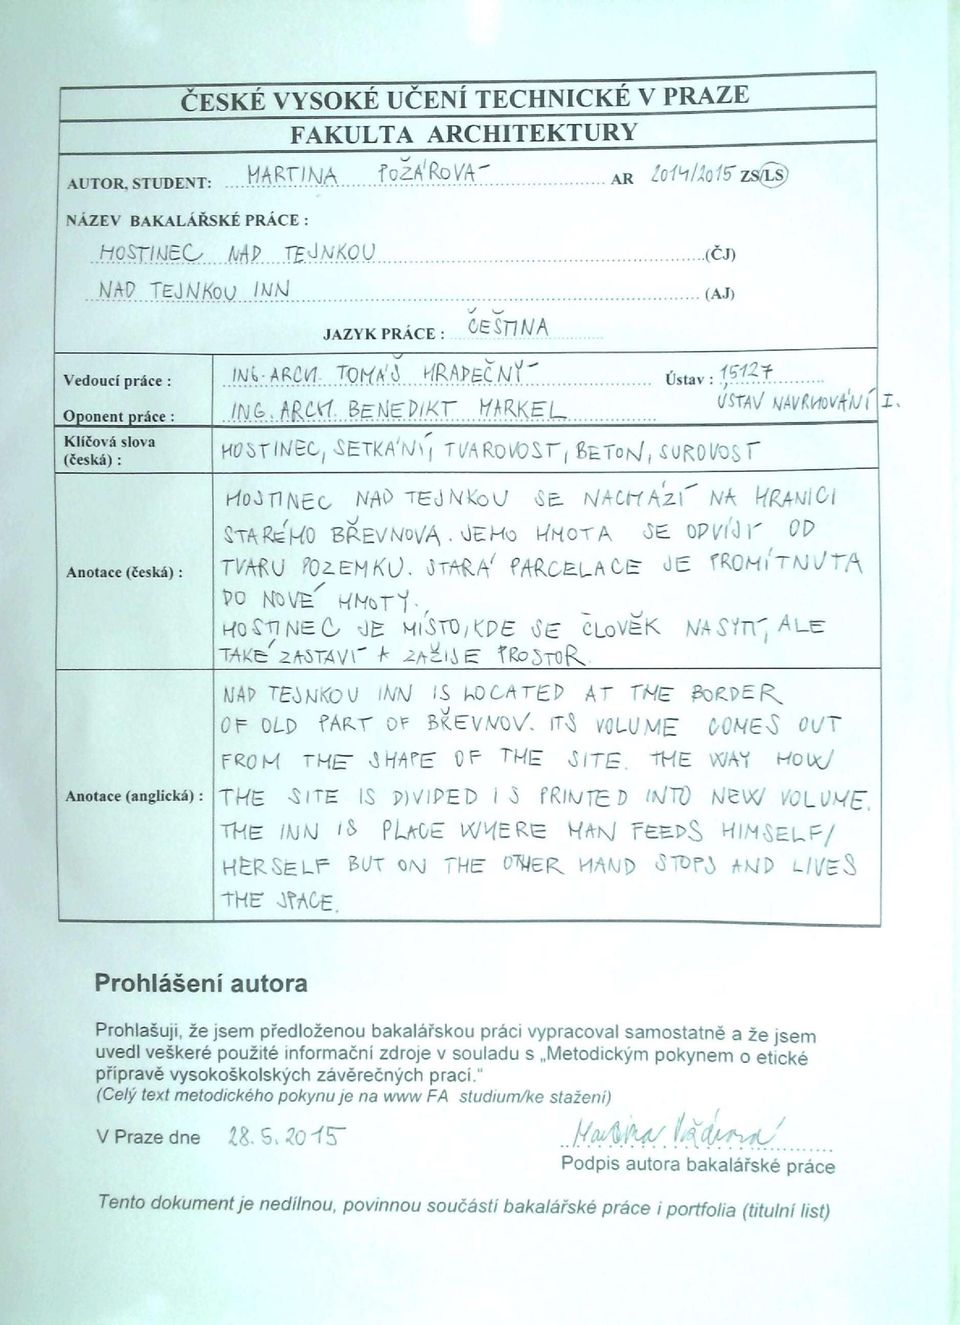 ČESKÉ VYSOKÉ UČENÍ TECHNICKÉ V PRAZE
FAKULTA ARCHITEKTURY
AUTOR, STUDENT: MARTINA POŽÁROVÁ AR 2014/2015 ZS/LS
NÁZEV BAKALÁŘSKÉ PRÁCE :
HOSTINEC NAD TEJNKOU (ČJ)
NAD TEJNKOU INN (AJ)
JAZYK PRÁCE : ČEŠTINA
Vedoucí práce : ING. ARCH. TOMÁŠ HRADEČNÝ Ústav : 15127
Oponent práce : ING. ARCH. BENEDIKT MARKEL ÚSTAV NAVRHOVÁNÍ I.
Klíčová slova
(česká) : HOSTINEC, SETKÁNÍ, TVAROVOST, BETON, SUROVOST
HOSTINEC NAD TEJNKOU SE NACHÁZÍ NA HRANICI
STARÉHO BŘEVNOVA. JEHO HMOTA SE ODVÍJÍ OD
Anotace (česká) : TVARU POZEMKU. STARÁ PARCELACE JE PROMÍTNUTA
DO NOVÉ HMOTY.
HOSTINEC JE MÍSTO, KDE SE ČLOVĚK NASYTÍ, ALE
TAKÉ ZASTAVÍ A ZAŽIJE PROSTOR.
NAD TEJNKOU INN IS LOCATED AT THE BORDER
OF OLD PART OF BŘEVNOV. ITS VOLUME COMES OUT
FROM THE SHAPE OF THE SITE. THE WAY HOW
Anotace (anglická) : THE SITE IS DIVIDED IS PRINTED INTO NEW VOLUME.
THE INN IS PLACE WHERE MAN FEEDS HIMSELF/
HERSELF BUT ON THE OTHER HAND STOPS AND LIVES
THE SPACE.
Prohlášení autora
Prohlašuji, že jsem předloženou bakalářskou práci vypracoval samostatně a že jsem
uvedl veškeré použité informační zdroje v souladu s „Metodickým pokynem o etické
přípravě vysokoškolských závěrečných prací."
(Celý text metodického pokynu je na www FA studium/ke stažení)
V Praze dne 28. 5. 2015 Martina Požárová
Podpis autora bakalářské práce
Tento dokument je nedílnou, povinnou součástí bakalářské práce i portfolia (titulní list)